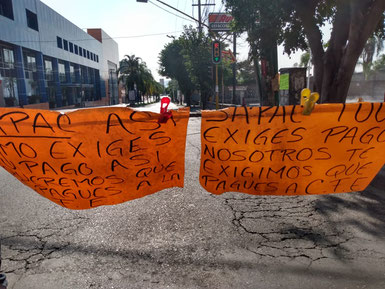 PAC ASA
MO EXIGES
PAGO ASI
EREMOS QUE
PAGUES A LA
SAPAC TU
EXIGES PAGO
NOSOTROS TE
EXIGIMOS QUE
PAGUES A CFE